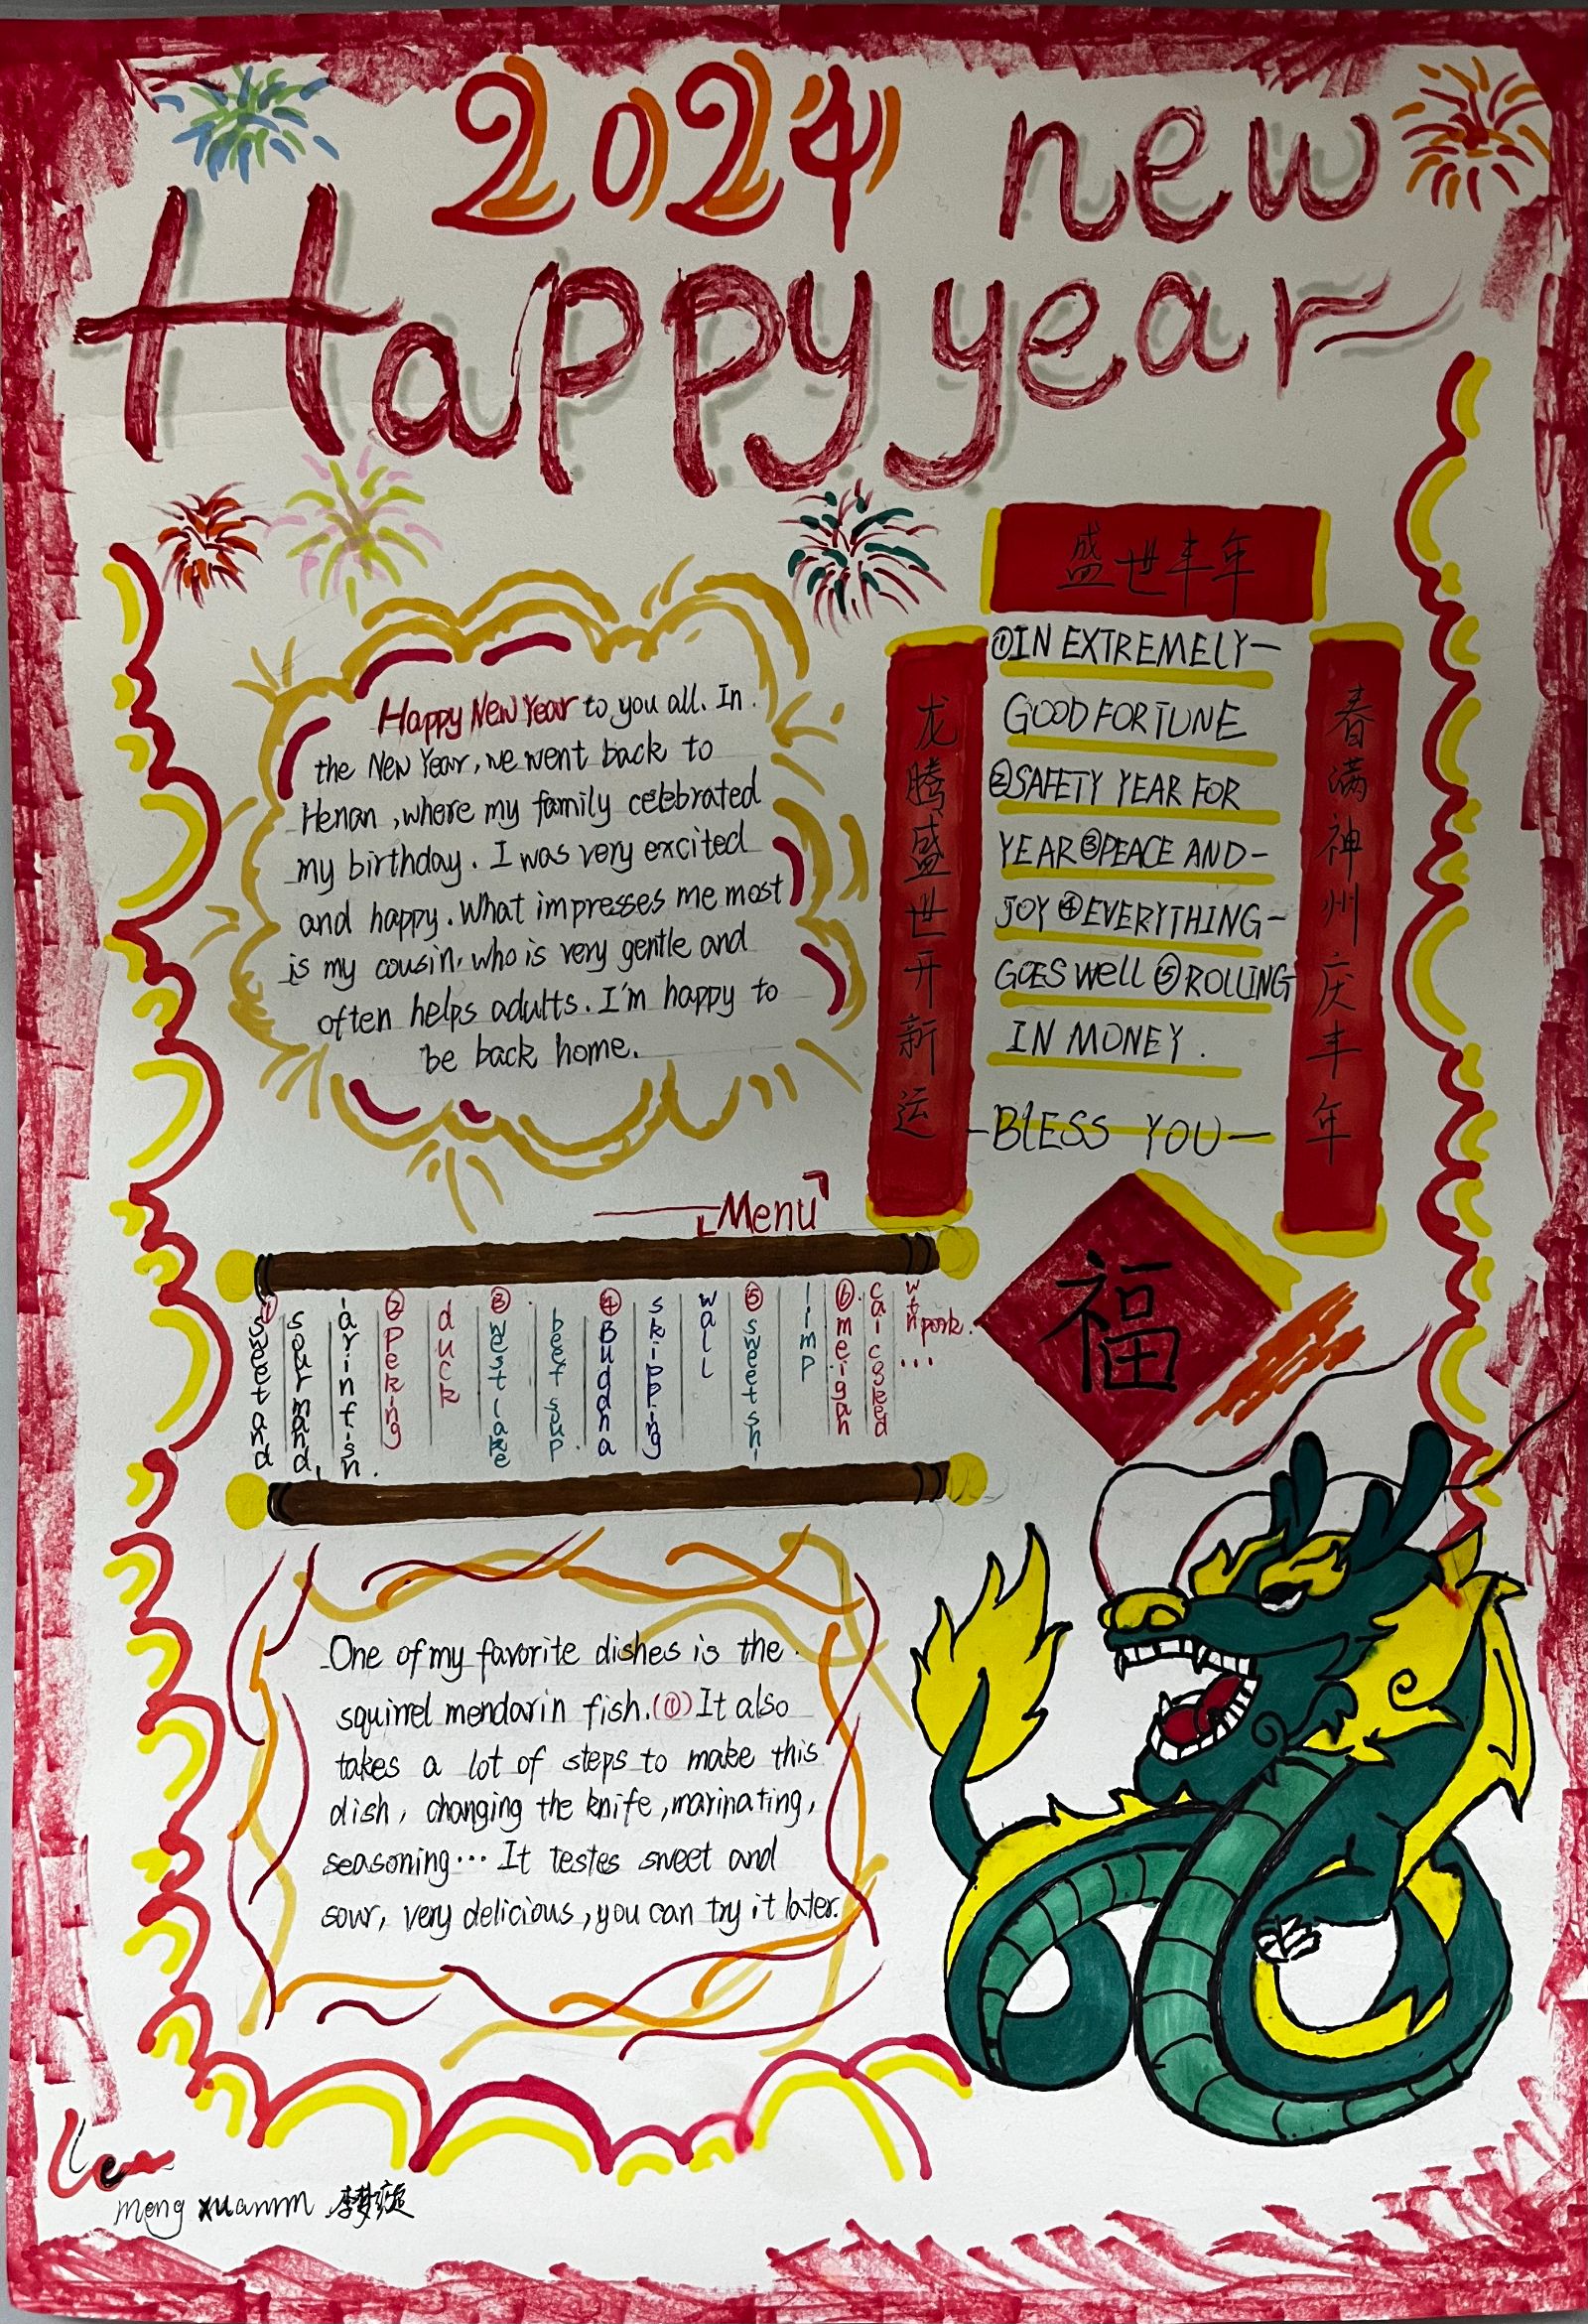 2024 new
Happy year
Happy New Year to you all. In
the New Year, we went back to
Henan, where my family celebrated
my birthday. I was very excited
and happy. What impresses me most
is my cousin, who is very gentle and
often helps adults. I'm happy to
be back home.
盛世丰年
龙腾盛世开新运
①IN EXTREMELY-
GOOD FORTUNE
②SAFETY YEAR FOR
YEAR③PEACE AND-
JOY ④EVERYTHING-
GOES Well ⑤ROLLING
IN MONEY.
-BlESS YOU-
春满神州庆丰年
福
Menu
① sweet and
sour mand,
arinfish.
② Peking
duck
③ westlake
beef soup.
④ Buddha
skipping
wall
⑤ sweet shr
limp
⑥ meigan
cai cooked
with pork.
...
One of my favorite dishes is the
squirrel mendarin fish.(①) It also
takes a lot of steps to make this
dish, changing the knife, marinating,
seasoning··· It testes sweet and
sour, very delicious, you can try it later.
Lee
meng xuannn 李梦